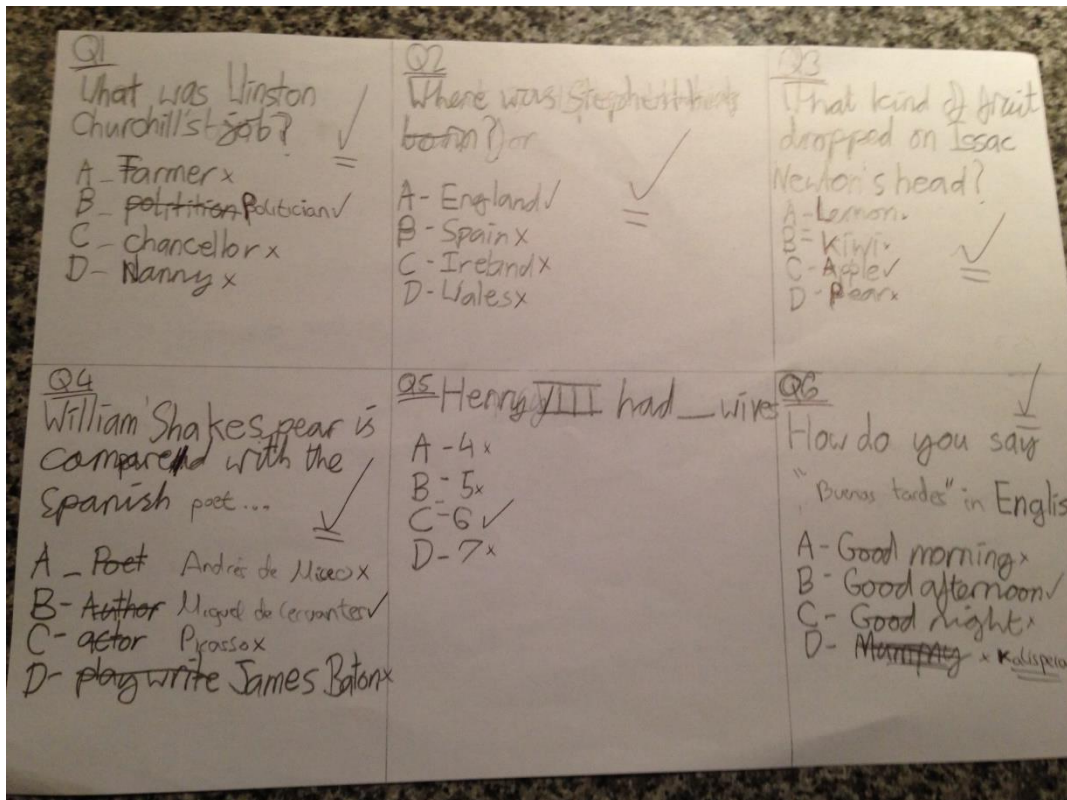 Q1
What was Winston
Churchill's job?
A - Farmer x
B - politition Politician ✓
C - chancellor x
D - Nanny x
Q2
Where was Stephen
born?
A - England ✓
B - Spain x
C - Ireland x
D - Wales x
Q3
What kind of fruit
dropped on Issac
Newton's head?
A - Lemon x
B - Kiwi x
C - Apple ✓
D - Pear x
Q4
William Shakespear is
compared with the
Spanish poet...
A - Poet Andrés de x
B - Author Miguel de Cervantes ✓
C - actor Picasso x
D - playwrite James Baton x
Q5 Henry VIII had __ wives
A - 4 x
B - 5 x
C - 6 ✓
D - 7 x
Q6
How do you say
"Buenas tardes" in Englis
A - Good morning x
B - Good afternoon ✓
C - Good night x
D - Mummy x Kalispera